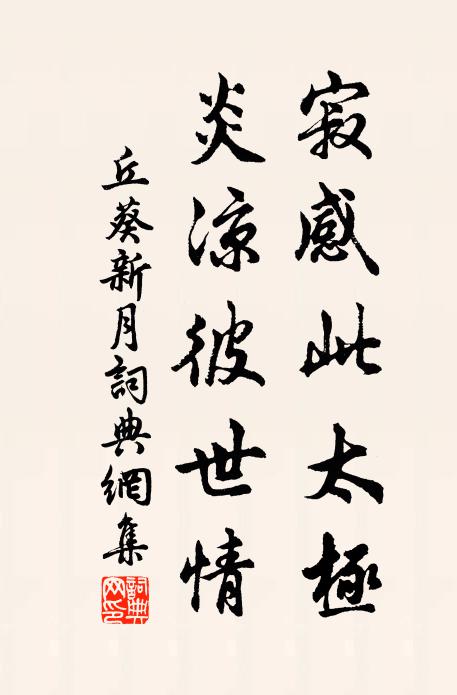 寂感此太極
炎涼彼世情
丘葵新月詞典網集
詞典網印